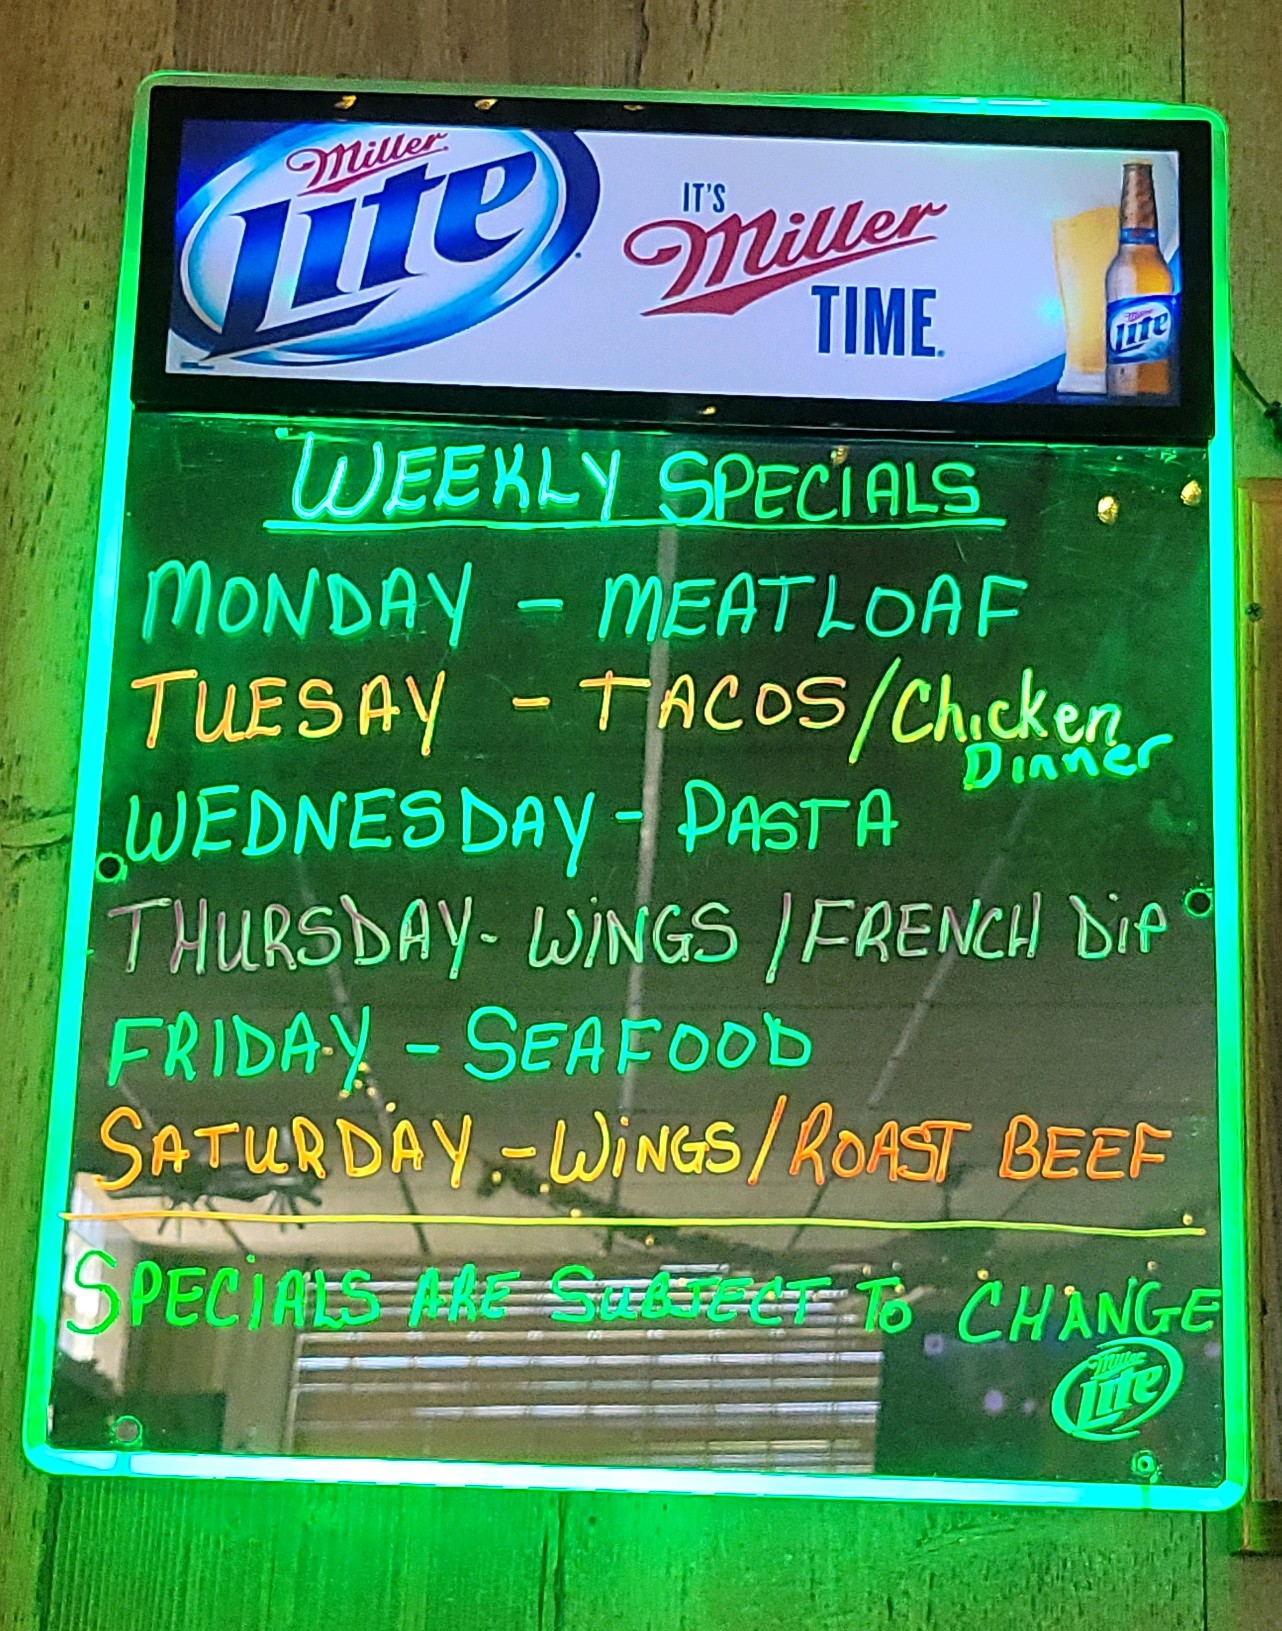 Miller
Lite
IT'S
Miller
TIME.
Miller
Lite
WEEKLY SPECIALS
MONDAY - MEATLOAF
TUESAY - TACOS/Chicken
Dinner
WEDNESDAY - PASTA
THURSDAY - WiNGS / FRENCH DiP
FRIDAY - SEAFOOD
SATURDAY - WiNGS/ROAST BEEF
SPECiALS ARE SUBJECT To CHANGE
Miller
Lite